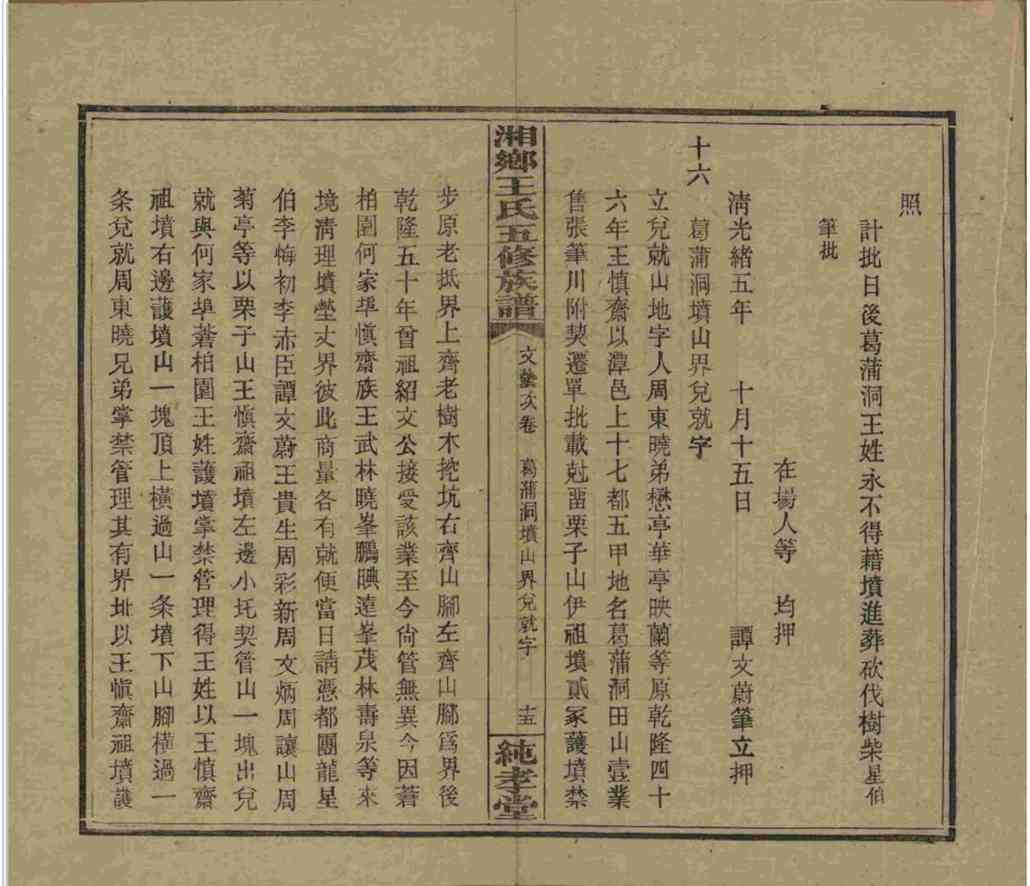 照
計批日後葛蒲洞王姓永不得藉墳進葬砍伐樹柴星伯
筆批
在場人等　均押
淸光緒五年　十月十五日　譚文蔚筆立押
十六　葛蒲洞墳山界兌就字
立兌就山地字人周東曉弟懋亭華亭映蘭等原乾隆四十
六年王愼齋以潭邑上十七都五甲地名葛蒲洞田山壹業
售張筆川附契遷單批載尅畱栗子山伊祖墳貳冢護墳禁
湘鄉王氏五修族譜
文藝次卷　葛蒲洞墳山界兌就字　十五
純孝堂
步原老抵界上齊老樹木挖坑右齊山腳左齊山腳爲界後
乾隆五十年曾祖紹文公接受該業至今尙管無異今因蒼
柏園何家埠愼齋族王武林曉峯鵬䀴遠峯茂林壽泉等來
境淸理墳塋丈界彼此商量各有就便當日請憑都團龍星
伯李悔初李赤臣譚文蔚王貴生周彩新周文炳周讓山周
菊亭等以栗子山王愼齋祖墳左邊小圫契管山一塊出兌
就與何家埠蒼柏園王姓護墳掌禁管理得王姓以王慎齋
祖墳右邊護墳山一塊頂上橫過山一条墳下山腳橫過一
条兌就周東曉兄弟掌禁管理其有界址以王愼齋祖墳護